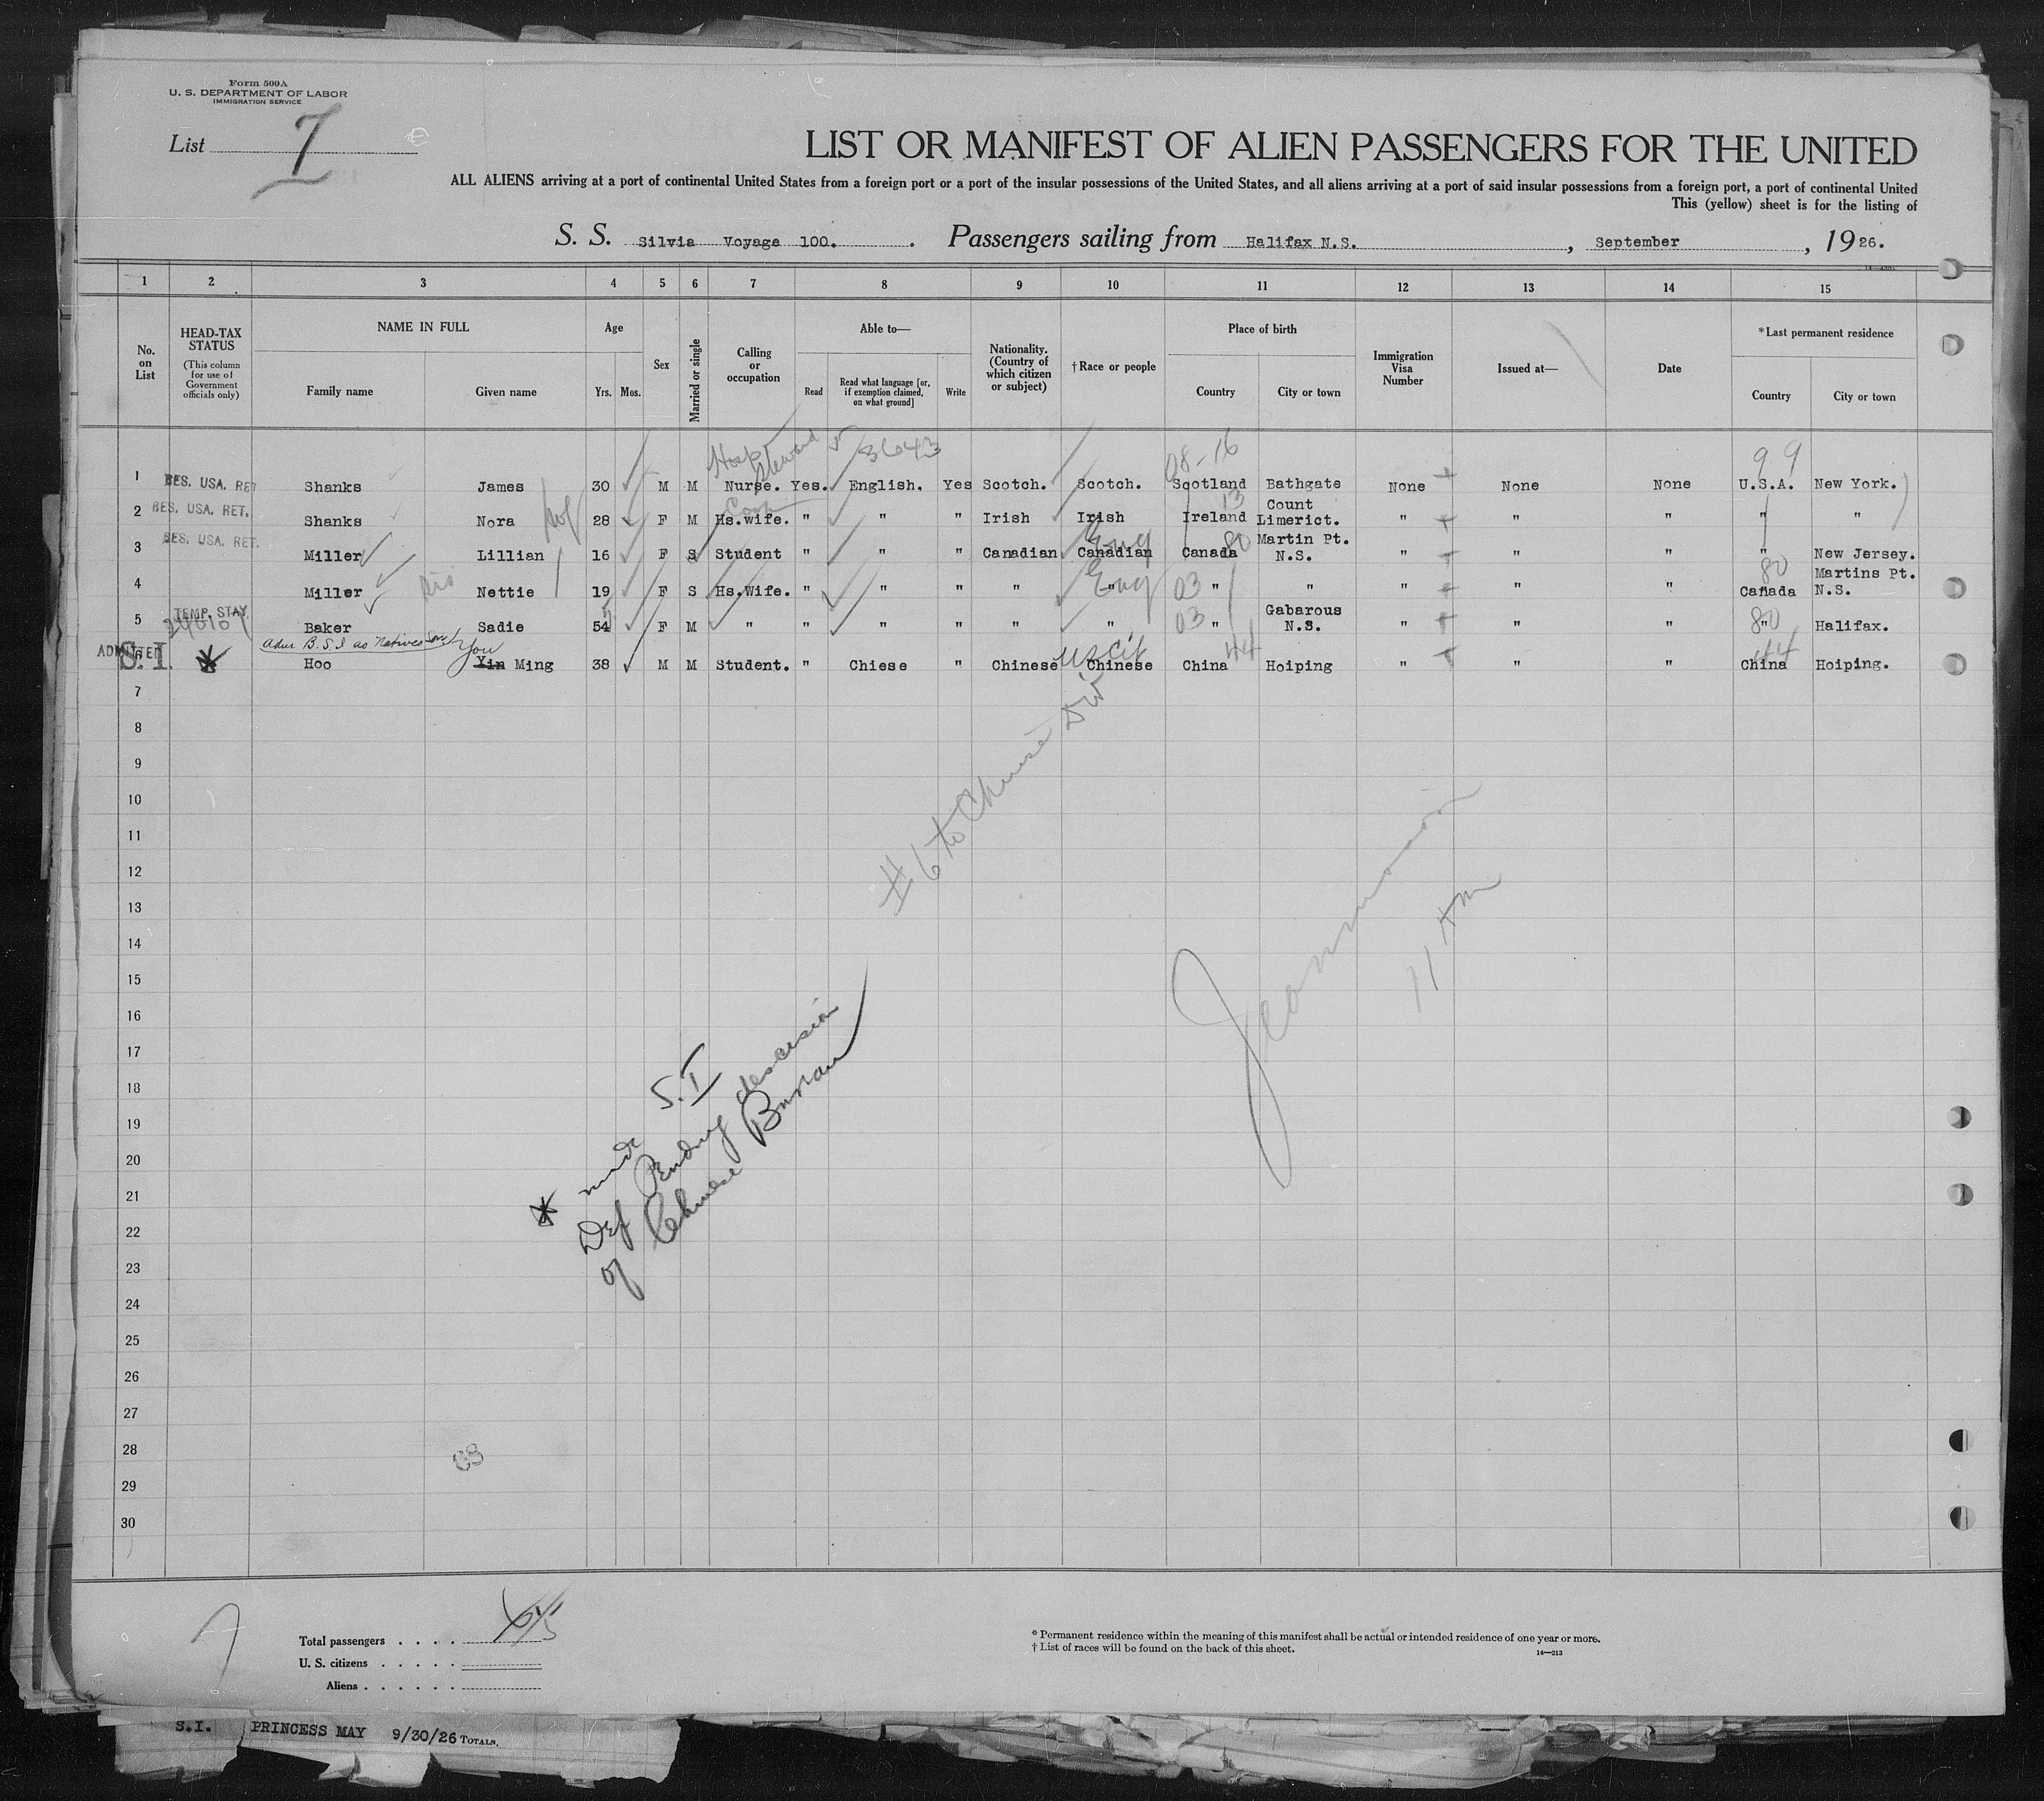 Form 500A
U. S. DEPARTMENT OF LABOR
IMMIGRATION SERVICE
List 7
LIST OR MANIFEST OF ALIEN PASSENGERS FOR THE UNITED
ALL ALIENS arriving at a port of continental United States from a foreign port or a port of the insular possessions of the United States, and all aliens arriving at a port of said insular possessions from a foreign port, a port of continental United
This (yellow) sheet is for the listing of
S. S. Silvia Voyage 100. Passengers sailing from Halifax N.S. , September , 1926.
1 2 3 4 5 6 7 8 9 10 11 12 13 14 15
No. on List
HEAD-TAX STATUS
(This column for use of Government officials only)
NAME IN FULL
Family name Given name
Age
Yrs. Mos.
Sex
Married or single
Calling or occupation
Able to—
Read
Read what language [or, if exemption claimed, on what ground]
Write
Nationality. (Country of which citizen or subject)
† Race or people
Place of birth
Country City or town
Immigration Visa Number
Issued at—
Date
*Last permanent residence
Country City or town
Hosp Steward 3643 08-16 99
1 RES. USA. RET Shanks James 30 M M Nurse. Yes. English. Yes Scotch. Scotch. Scotland Bathgate None None None U.S.A. New York.
Cook 13
2 RES. USA. RET. Shanks Nora 28 F M Hs.wife. " " " Irish Irish Ireland Count Limerict. " " " " "
Eng 80
3 RES. USA. RET. Miller Lillian 16 F S Student " " " Canadian Canadian Canada Martin Pt. N.S. " " " " New Jersey.
Eng 03 80
4 Miller Nettie 19 F S Hs.Wife. " " " " " " " " " " Canada Martins Pt. N.S.
03 80
5 TEMP. STAY. Baker Sadie 54 F M " " " " " " " Gabarous N.S. " " " " Halifax.
Adm B.S.I as Natives Son You US Cit 44 44
ADMITTED S.I. 6 * Hoo Yin Ming 38 M M Student. " Chiese " Chinese Chinese China Hoiping " " " China Hoiping.
7
8
9
10
11
12
13
14
15
16
17
18
19
20
21
22
23
24
25
26
27
28
29
30
#6 to Chinese Div
11 AM
S.I
* Def Pending descision
of Chinese Bureau
7
Total passengers . . . .
U. S. citizens . . . . .
Aliens . . . . . .
* Permanent residence within the meaning of this manifest shall be actual or intended residence of one year or more.
† List of races will be found on the back of this sheet.
14—213
S.I. PRINCESS MAY 9/30/26 TOTALS.